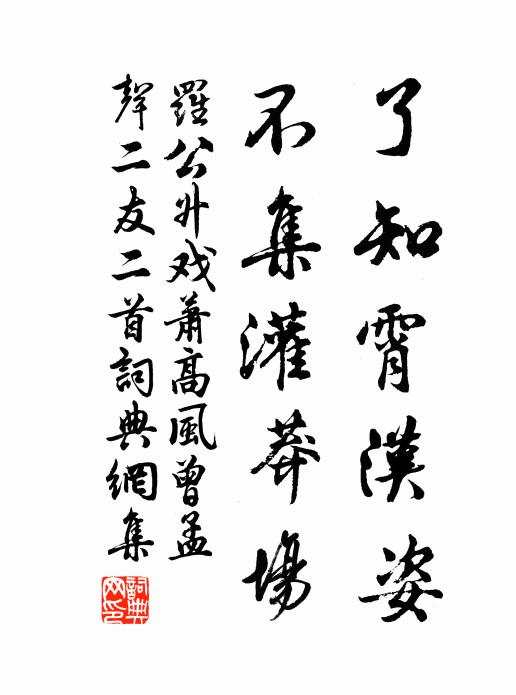 了知霄漢姿
不集灌莽場
羅公升戏蕭高風曾孟
聲二友二首詞典網集
詞典網印